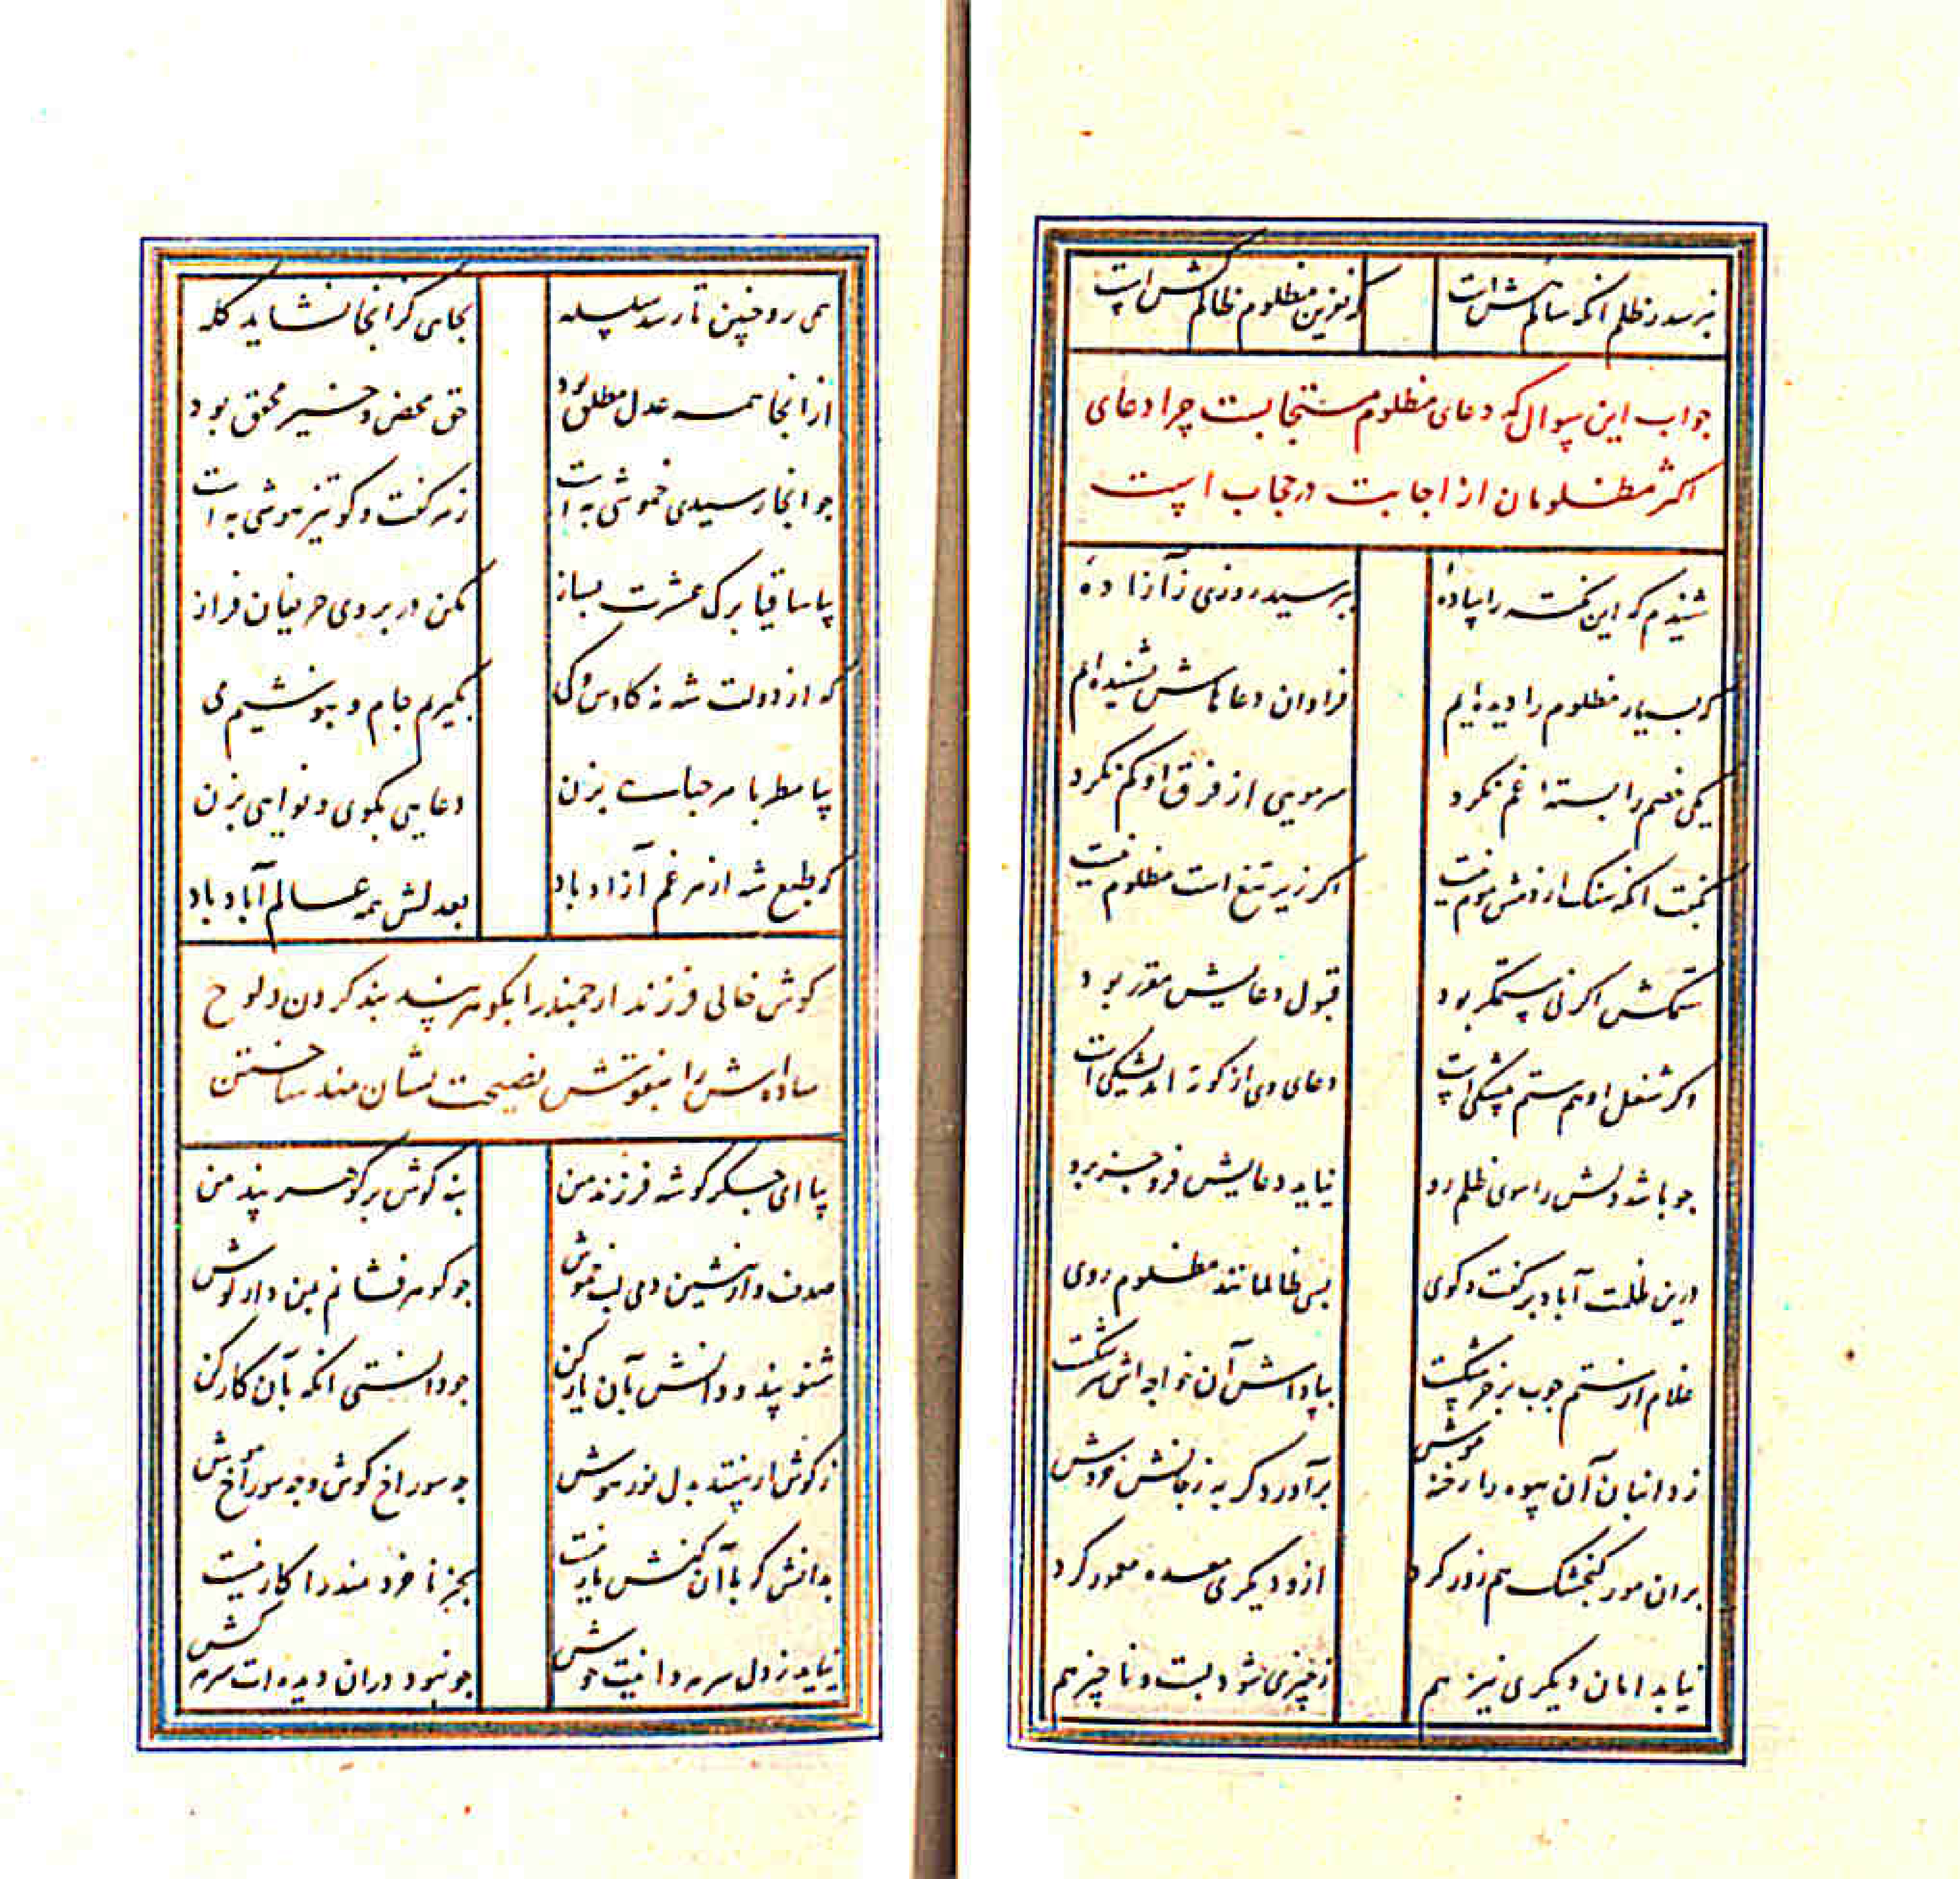 بترسد ز ظلم آنکه سالم‌وش است که نفرین مظلوم ظالم‌کش است
جواب این سوال که دعای مظلوم مستجابست چرا دعای
اکثر مظلومان از اجابت در حجاب است
شنیدم که این نکته را ساده پرسید روزی ز آزاده
که بسیار مظلوم را دیده‌ایم فراوان دعاهاش بشنیده‌ایم
یکی خصم را بستهٔ غم نکرد سر مویی از فرق او کم نکرد
بگفت آنکه سنگ از دمش موم نیست اگر زیر تیغ است مظلوم نیست
ستمکش اگر نی ستمگر بود قبول دعایش مقرر بود
وگر شغل او هم ستم پیشگی است دعای وی از کوته اندیشگی است
جو باشد دلش را سوی ظلم رو نیاید دعایش فرو جز برو
درین ظلمت آباد پر گفت و گوی بسی ظالمانند مظلوم روی
غلام از ستم جوب بر خر شکست بپاداش آن خواجه‌اش سر شکست
ز دانبان آن بیوه را رخنه موش برآورد گربه ز جانش خروش
بران مور گنجشک هم زور کرد ازو دیگری معده معمور کرد
نیابد امان دیگری نیز هم ز چیزی شود پست و ناچیز هم
همی رو چنین تا رسد سلسله بجایی کز آنجا نشاید گله
از آنجا همه عدل مطلق بود حق محض و خیر محقق بود
جو آنجا رسیدی خموشی به است ز هر گفت و گو تیز هوشی به است
بیا ساقیا برگ عشرت بساز مکن در بروی حریفان فراز
که از دولت شه نه کاوس و کی بگیریم جام و بنوشیم می
بیا مطربا مرحبایی بزن دعایی بگوی و نوایی بزن
که طبع شه از هر غم آزاد باد بعدلش همه عالم آباد باد
گوش خالی فرزند ارجمند را بگوهر پند بند کردن و لوح
ساده‌اش را بنقوش نصیحت نشان مند ساختن
بیا ای جگر گوشه فرزند من بنه گوش بر گوهر پند من
صدف وار بنشین دمی لب خموش جو گوهر فشانم بمن دار گوش
شنو پند و دانش بآن یار کن جو دانستی آنگه بآن کار کن
ز گوش ار نیفتد بدل نور هوش جه سوراخ گوش و جه سوراخ موش
بدانش که با آن کنش یار نیست بجز ناخردمند را کار نیست
نیاید ز دل سر مه دانیت خوش جو نبود در آن دیده‌ات سرمه کش